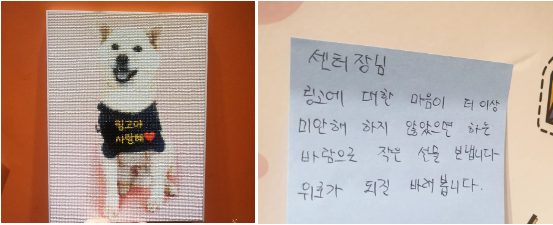 링고야
사랑해❤
센터장님
링고에 대한 마음이 더 이상
미안해 하지 않았으면 하는
바람으로 작은 선물 보냅니다
위로가 되길 바래봅니다.